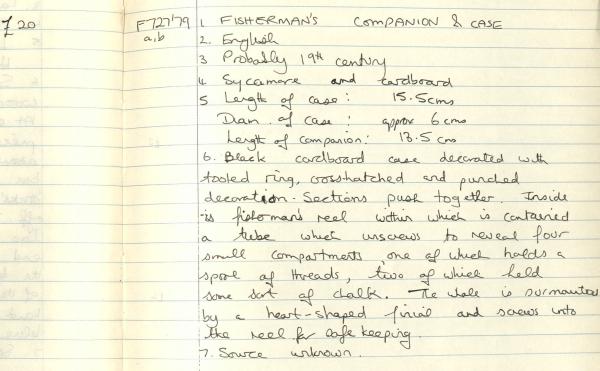 £20
F727'79
a,b
1 FISHERMAN'S COMPANION & CASE
2. English
3 Probably 19th century
4 Sycamore and cardboard
5 Length of case: 15.5cms
Diam. of case: approx 6 cms
Length of companion: 13.5 cms
6. Black cardboard case decorated with
tooled ring, crosshatched and punched
decoration. Sections push together. Inside
is fisherman's reel within which is contained
a tube which unscrews to reveal four
small compartments, one of which holds a
spool of threads, two of which hold
some sort of chalk. The whole is surmounted
by a heart-shaped finial and screws into
the reel for safe keeping.
7. Source unknown.